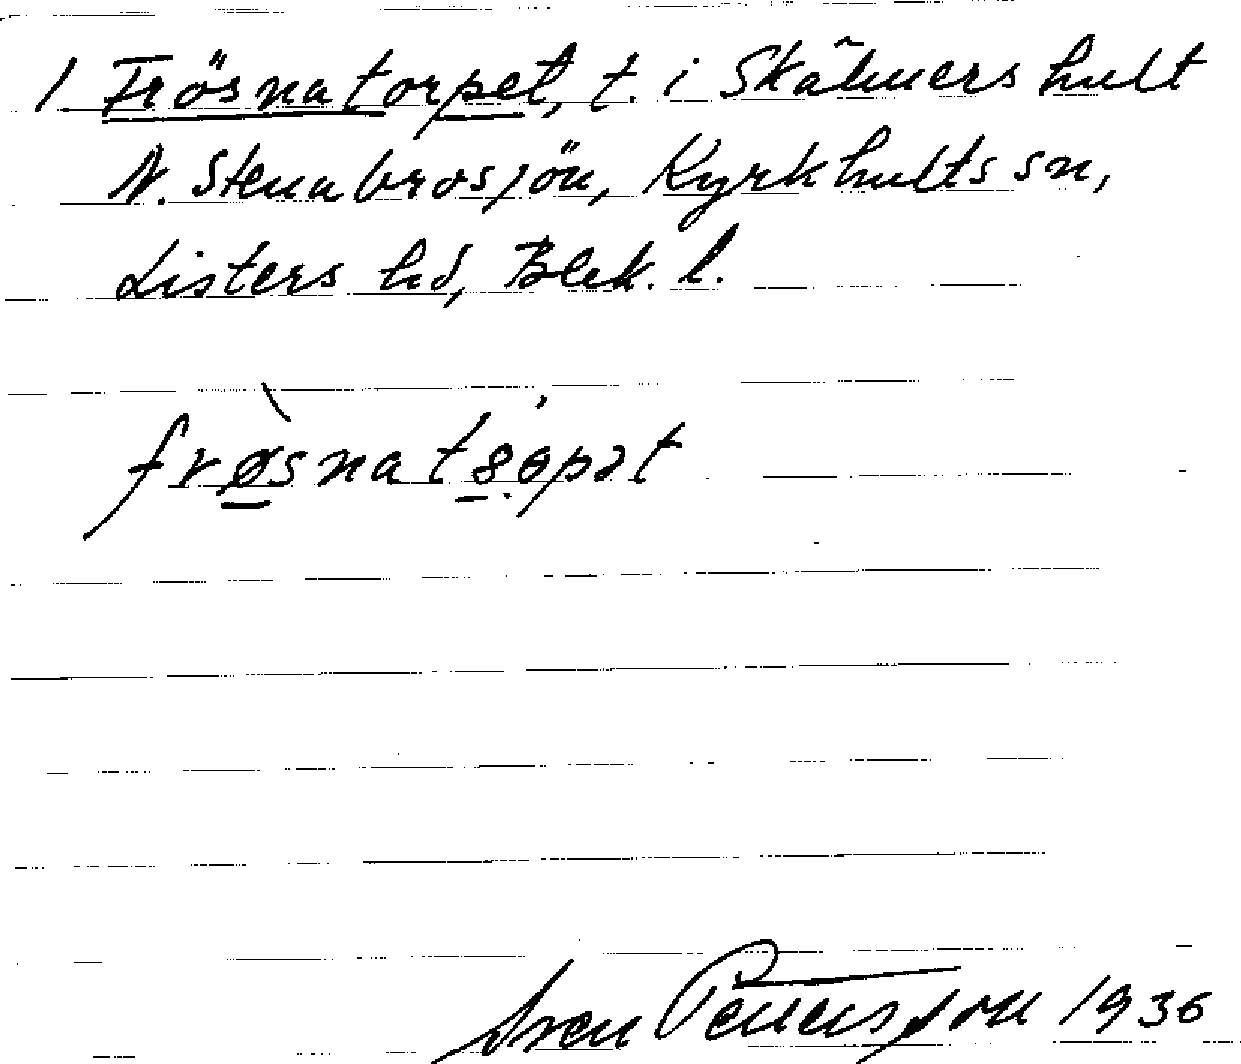 1 Frösnatorpet, t. i Skålmershult
N. Stenabrosjön, Kyrkhults sn,
Listers hd, Blek. l.
Sven Pettersson 1936